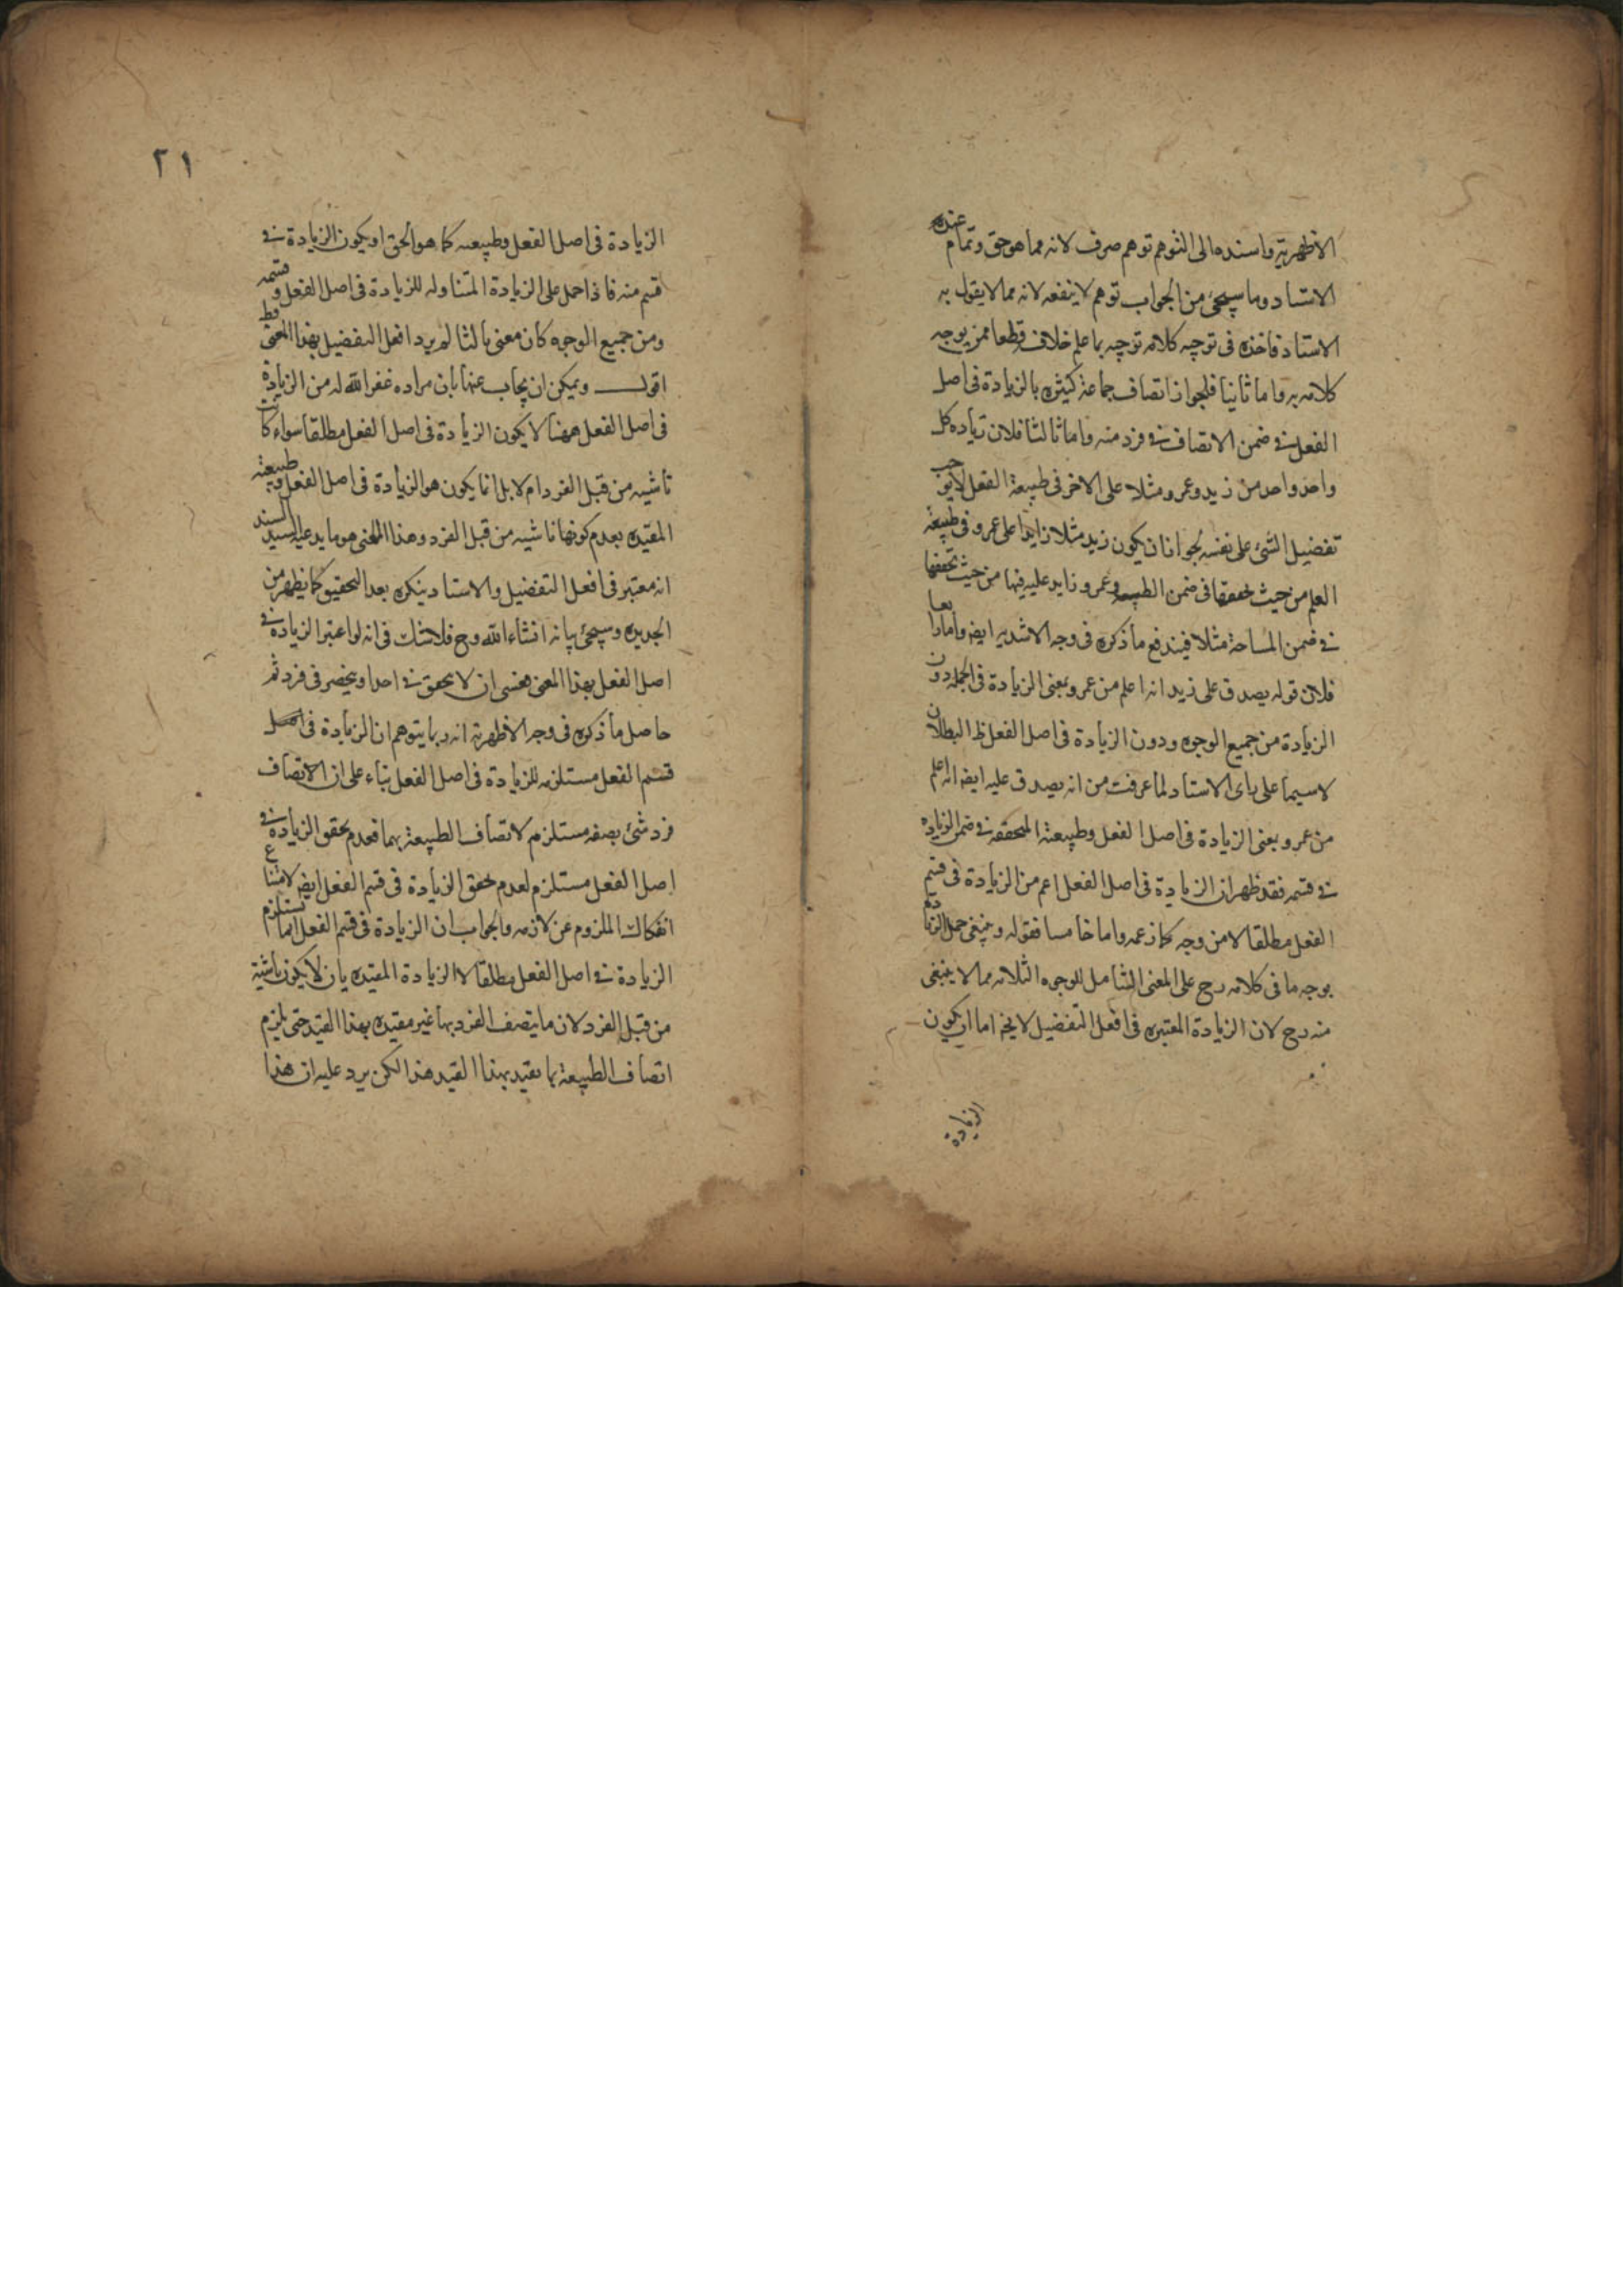 الاظهرية واسنده الى التوهم توهم صرف لانه مما هو حق وتمام عنده
الاستاد وما سيجئ من الجواب توهم لا ينفعه لانه مما لا يقول به
الاستاد فاخذه فى توجيه كلامه توجيه بما علم خلافه قطعا ممن يوجه
كلامه به واما ثانيا فلجواز اتصاف جماعة كثيرة بالزيادة فى اصل
الفعل فى ضمن الاتصاف فى فرد منه واما ثالثا فلان زيادة كل
واحد واحد من زيد وعمرو مثلا على الاخر فى طبيعة الفعل لا يوجب
تفضيل الشئ على نفسه لجواز ان يكون زيد مثلا زايدا على عمرو فى طبيعة
العلم من حيث تحققها فى ضمن الطبيعه وعمرو زايد عليه فيها من حيث تحققها
فى ضمن المساحة مثلا فيندفع ما ذكره فى وجه الاشدية ايضا واما رابعا
فلان قوله يصدق على زيد انه اعلم من عمرو بمعنى الزيادة فى الجملة دون
الزيادة من جميع الوجوه ودون الزيادة فى اصل الفعل ظ البطلان
لا سيما على راى الاستاد لما عرفت من انه يصدق عليه ايضا انه اعلم
من عمرو بمعنى الزيادة فى اصل الفعل وطبيعة المتحققه فى ضمن الزيادة
فى قسمه فقد ظهر ان الزيادة فى اصل الفعل اعم من الزيادة فى قسم
الفعل مطلقا لا من وجه كما زعمه واما خامسا فقوله وينبغى حمل الزيادة
بوجه ما فى كلامه رح على المعنى الشامل للوجوه الثلاثه مما لا ينبغى
منه رح لان الزيادة المعتبرة فى افعل التفضيل لا يخ اما ان يكون
الزيادة
٢١
الزيادة فى اصل الفعل وطبيعته كما هو الحق او يكون الزيادة فى
قسم منه فاذا حمل على الزيادة المتناوله للزيادة فى اصل الفعل وقسمه
ومن جميع الوجوه كان معنى ثالثا لم يرد افعل التفضيل بهذا المعنى قط
اقول ويمكن ان يجاب عنها بان مراده غفر الله له من الزيادة
فى اصل الفعل ههنا لا يكون الزيادة فى اصل الفعل مطلقا سواء كانت
ناشيه من قبل الفرد ام لا بل انما يكون هو الزيادة فى اصل الفعل وطبيعته
المقيدة بعدم كونها ناشيه من قبل الفرد وهذا المعنى هو ما يدعيه السيد السند
انه معتبر فى افعل التفضيل والاستاد ينكره بعد التحقيق كما يظهر من
الجديدة وسيجئ بيانه انشاء الله وح فلا شك فى انه لو اعتبر الزيادة فى
اصل الفعل بهذا المعنى فعسى ان لا يتحقق فى احد او ينحصر فى فرد ثم
حاصل ما ذكره فى وجه الاظهرية انه ربما يتوهم ان الزيادة فى اصل
قسم الفعل مستلزمه للزيادة فى اصل الفعل بناء على ان الاتصاف
فرد شئ بصفه مستلزم لاتصاف الطبيعة بها فعدم تحقق الزيادة فى
اصل الفعل مستلزم لعدم تحقق الزيادة فى قسم الفعل ايضا لامتناع
انفكاك الملزوم عن لازمه والجواب ان الزيادة فى قسم الفعل انما تستلزم
الزيادة فى اصل الفعل مطلقا لا الزيادة المقيدة بان لا يكون ناشية
من قبل الفرد لان ما يتصف الفرد بها غير مقيدة بهذا القيد حتى يلزم
اتصاف الطبيعة بما يقيد بهذا القيد هذا لكن يرد عليه ان هذا